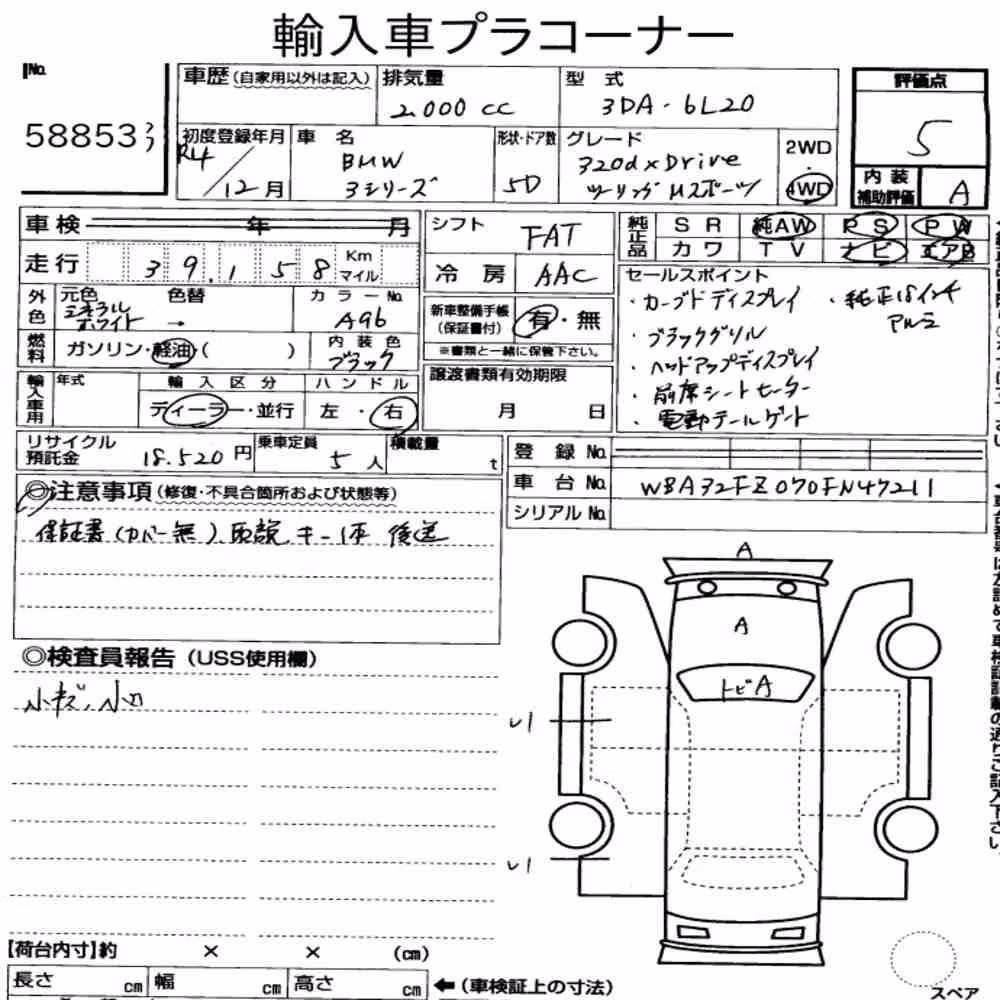 輸入車プラコーナー
No.
58853
車歴(自家用以外は記入)
排気量
2.000 cc
型 式
3DA-6L20
評価点
5
内装補助評価 A
初度登録年月
R4/12月
車 名
BMW
3シリーズ
形状・ドア数
5D
グレード
320d xDrive
ツーリング Mスポーツ
2WD
・
4WD
車検 年 月
走行 39.158 Km マイル
外色
元色 ミネラルホワイト
色替 →
カラーNo. A96
燃料
ガソリン・軽油・( )
内装色
ブラック
輸入車用
年式
輸入区分
ディーラー・並行
ハンドル
左・右
リサイクル預託金 18.520円
乗車定員 5人
積載量 t
シフト FAT
冷房 AAC
新車整備手帳(保証書付) 有・無
※書類と一緒に保管下さい。
譲渡書類有効期限
月 日
純正品
SR 純AW PS PW
カワ TV ナビ エアB
セールスポイント
・カーブドディスプレイ ・純正18インチアルミ
・ブラックグリル
・ヘッドアップディスプレイ
・前席シートヒーター
・電動テールゲート
登録No.
車台No. WBA32FZ070FN47211
シリアルNo.
◎注意事項(修復・不具合箇所および状態等)
保証書(カバー無)、取説、キー1本 後送
◎検査員報告(USS使用欄)
小キズ、小凹
A
A
トビA
【荷台内寸】約 × × (cm)
長さ cm 幅 cm 高さ cm ←(車検証上の寸法)
スペア